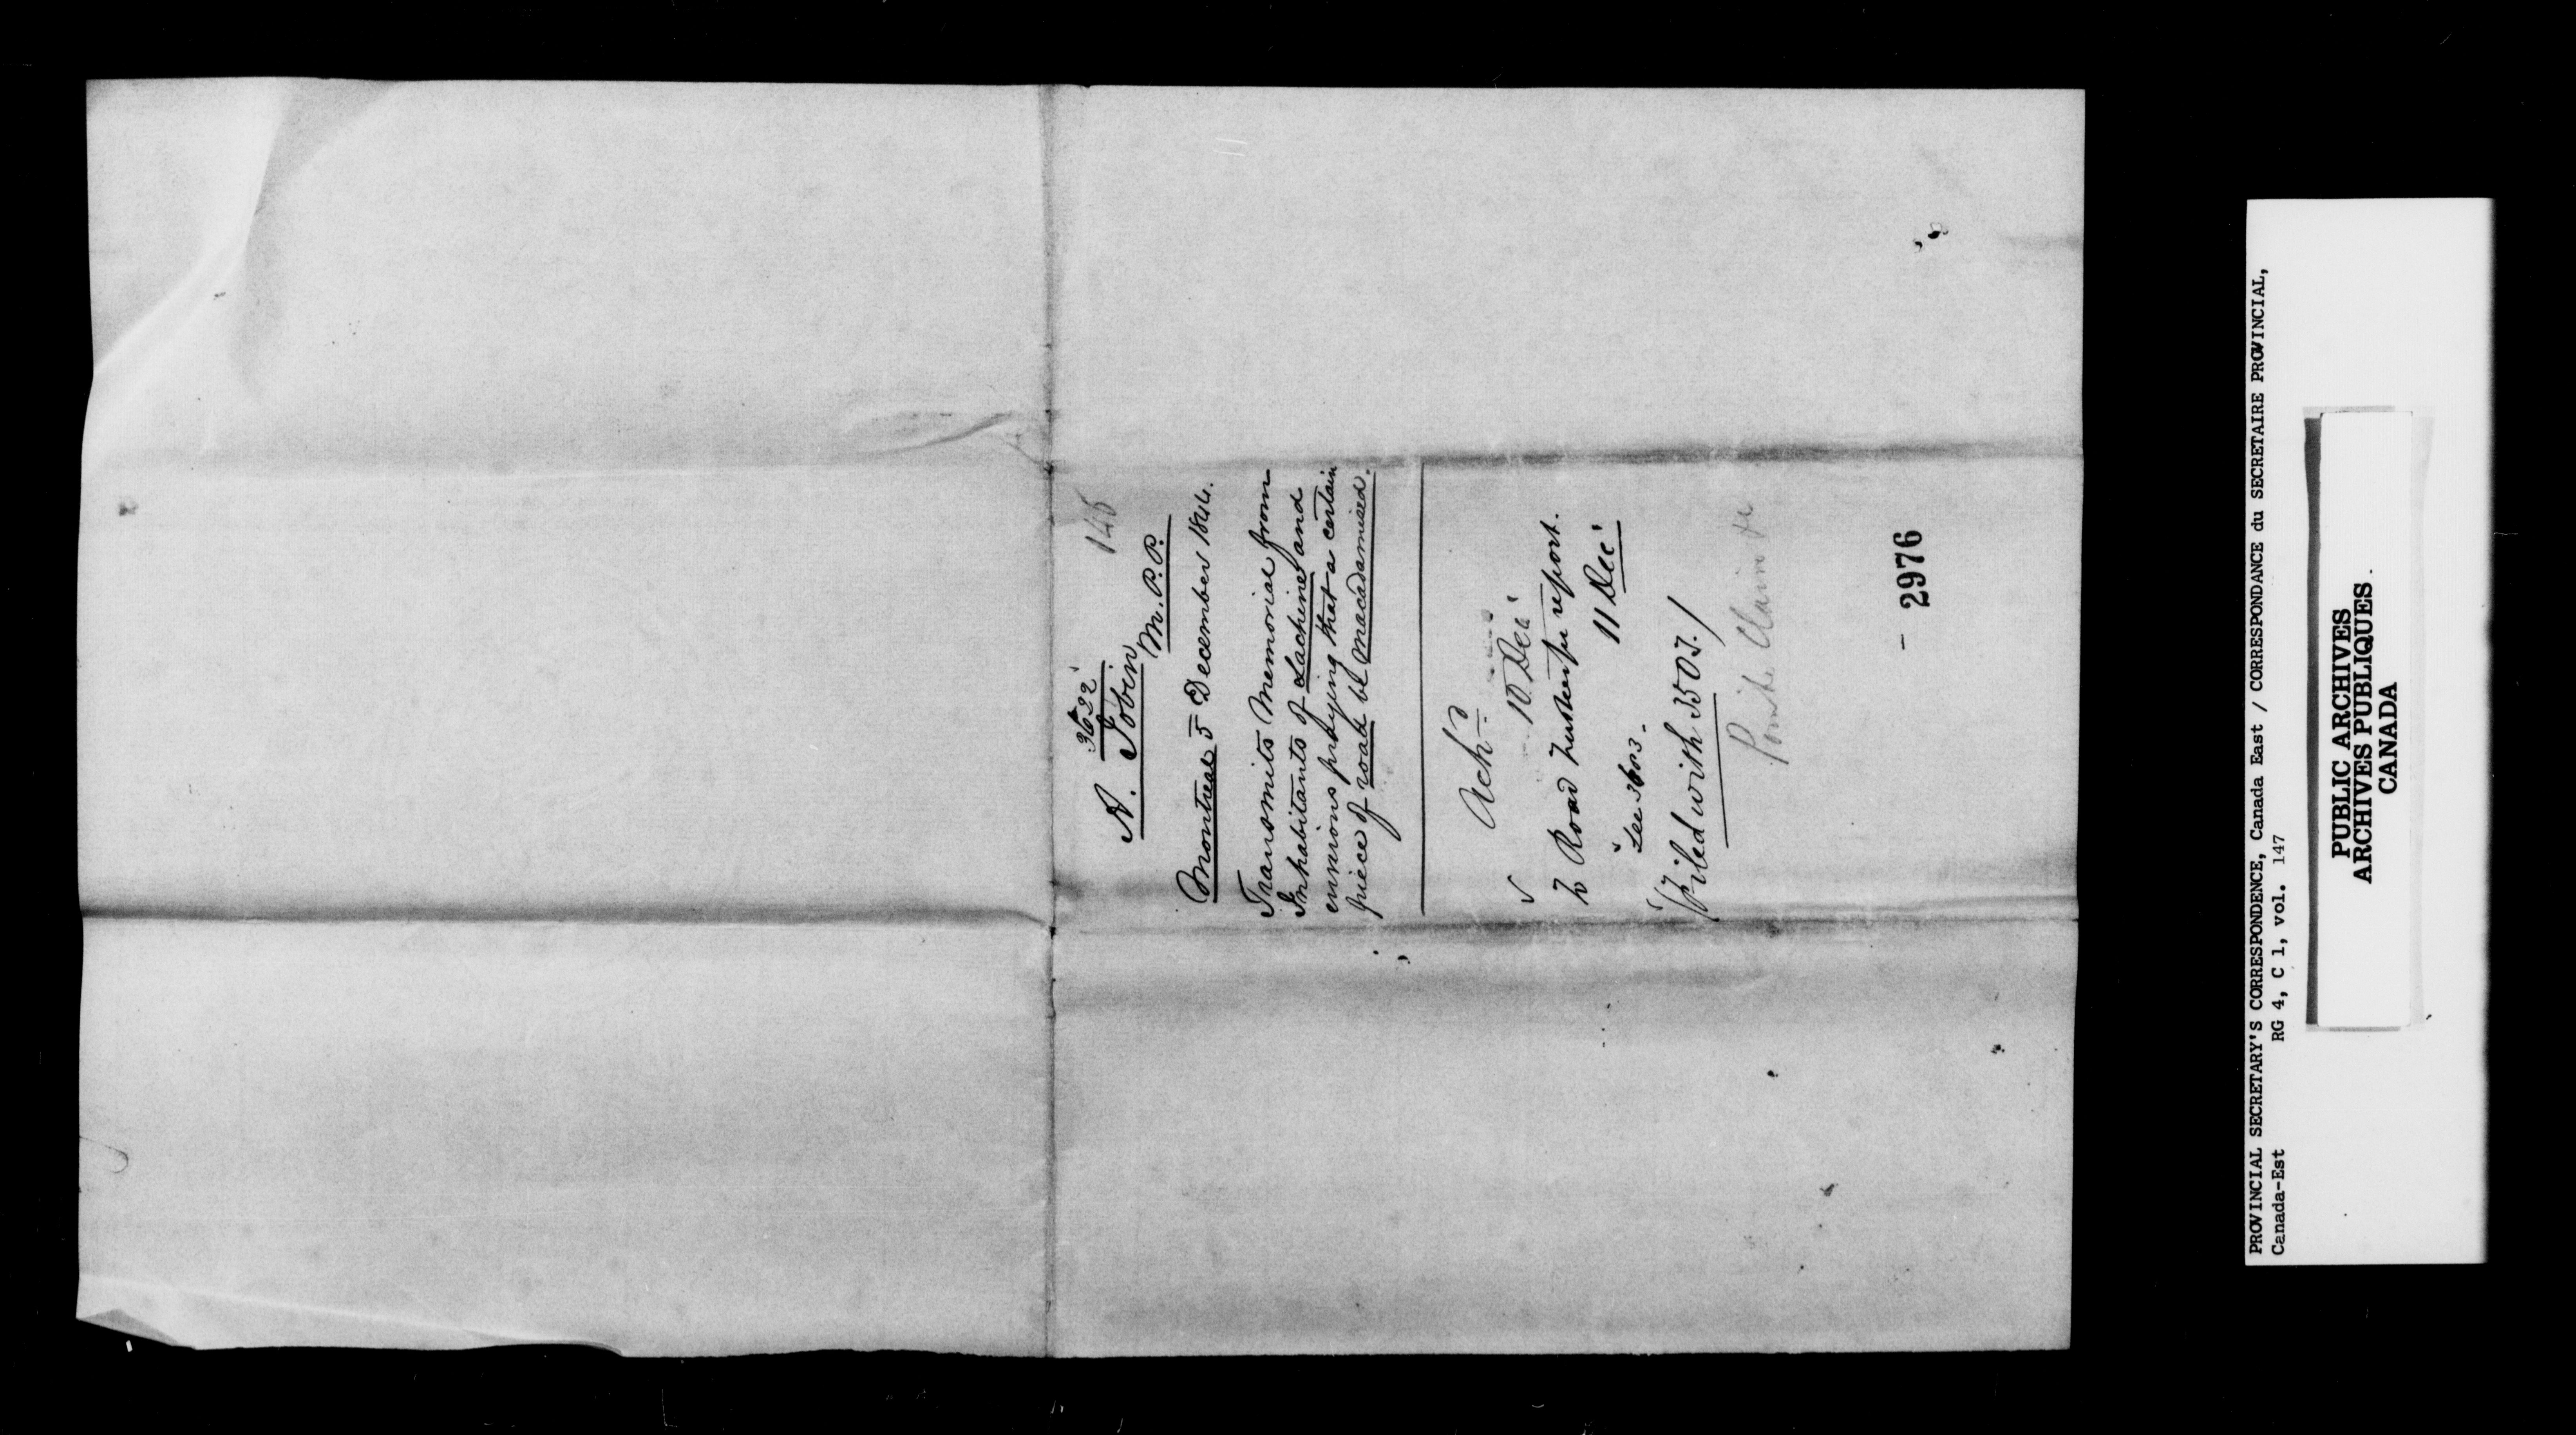 3622
145
A. Tobin
M.P.P.
Montreal 5 December 1844.
Transmits Memorial from
Inhabitants of Lachine and
environs praying that a certain
piece of road be macadamised.
Ackd
10 Dec
To Road Trustees for report.
11 Dec
See 3603.
Filed with
Pointe Claire
- 2976
PROVINCIAL SECRETARY'S CORRESPONDENCE, Canada East / CORRESPONDANCE du SECRETAIRE PROVINCIAL,
Canada-Est RG 4, C 1, vol. 147
PUBLIC ARCHIVES
ARCHIVES PUBLIQUES
CANADA